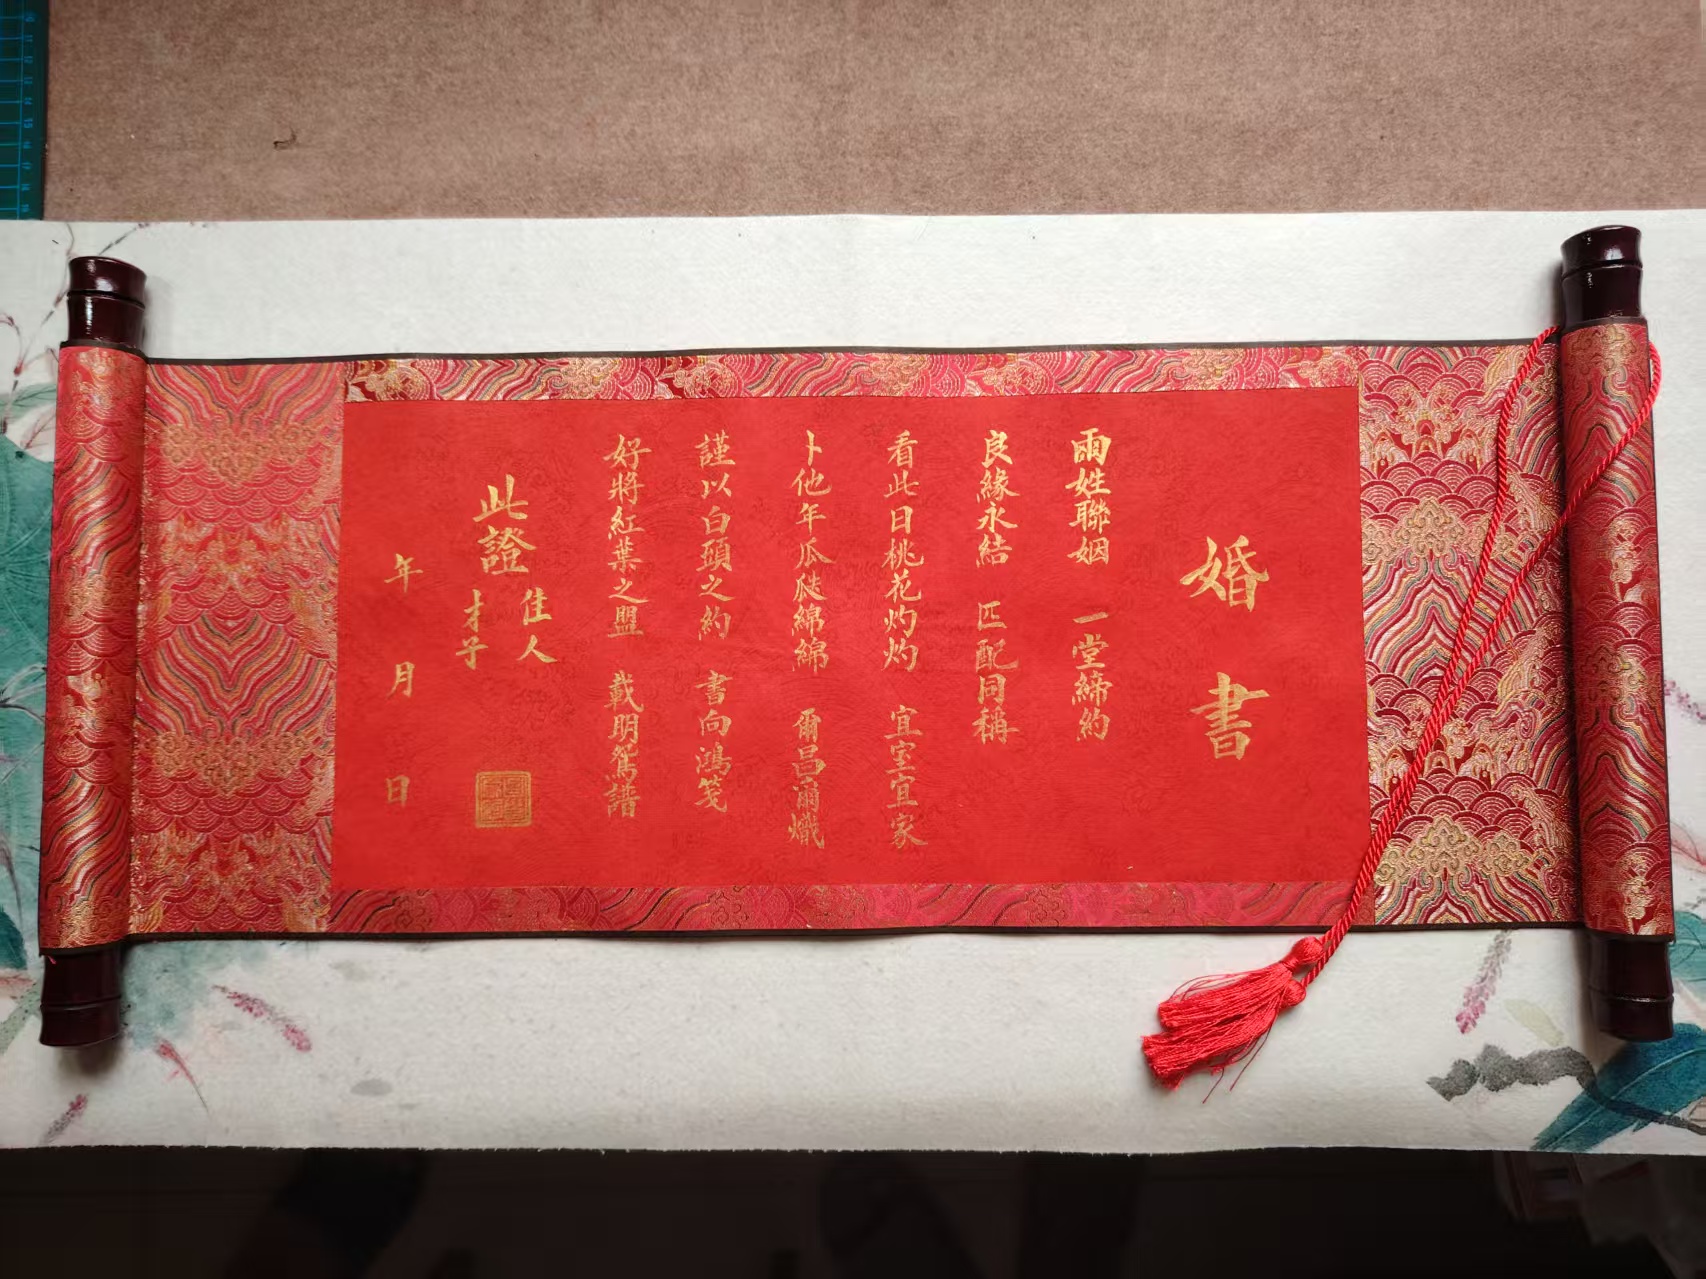 婚書
兩姓聯姻 一堂締約
良緣永結 匹配同稱
看此日桃花灼灼 宜室宜家
卜他年瓜瓞綿綿 爾昌爾熾
謹以白頭之約 書向鴻箋
好將紅葉之盟 載明鴛譜
此證
佳人
才子
年 月 日